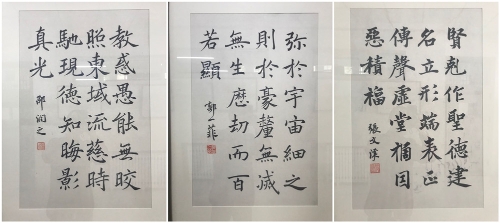 教惑愚能無皎
照東域流慈時
馳現德知晦影
真光
邵润之
弥於宇宙細之
則於豪釐無滅
無生歷劫而百
若顯
郭一菲
賢剋作聖德建
名立形端表正
傳聲虛堂禍因
惡積福
張文漢